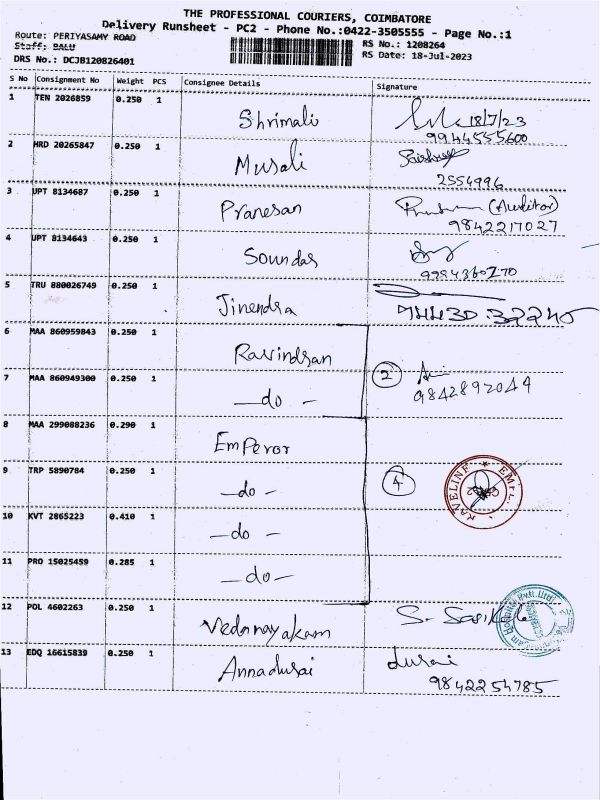 THE PROFESSIONAL COURIERS, COIMBATORE
Delivery Runsheet - PC2 - Phone No.:0422-3505555 - Page No.:1
Route: PERIYASAMY ROAD
RS No.: 1208264
Staff: BALU
RS Date: 18-Jul-2023
DRS No.: DCJB120826401
S No Consignment No Weight PCS Consignee Details Signature
1 TEN 2026859 0.250 1 Shrimali 18/7/23
9944555600
2 HRD 20265847 0.250 1 Musali
2554996
3 UPT 8134687 0.250 1 Pranesan (Auditor)
9842217027
4 UPT 8134643 0.250 1 Soundar
9994360270
5 TRU 880026749 0.250 1 Jinendra
94430 32240
6 MAA 860959843 0.250 1 Ravindran
7 MAA 860949300 0.250 1 -do- 2 9842892044
8 MAA 299088236 0.290 1 Emperor
9 TRP 5890784 0.250 1 -do- 4
10 KVT 2865223 0.410 1 -do-
11 PRO 15025459 0.285 1 -do-
12 POL 4602263 0.250 1 Vedanayakam S. Sasikala
13 EDQ 16615839 0.250 1 Annadurai durai
9842254785